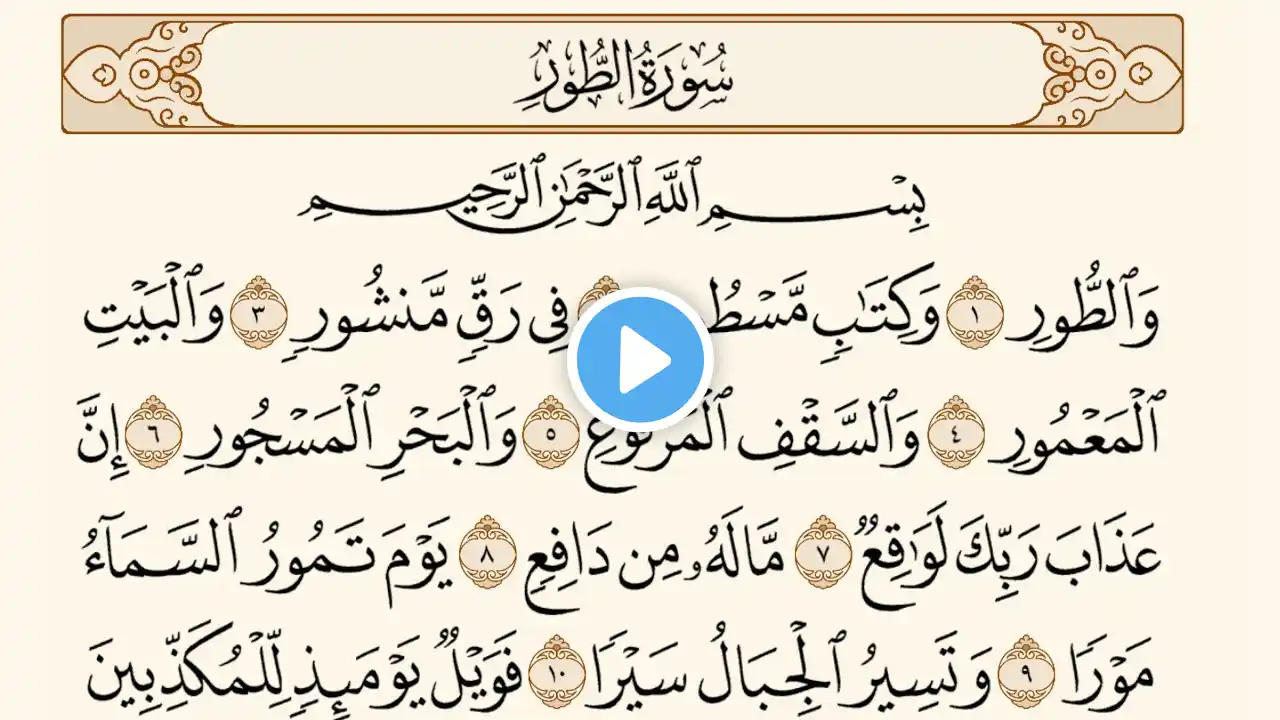 سُورَةُ الطُّورِ
بِسْمِ ٱللَّهِ ٱلرَّحْمَٰنِ ٱلرَّحِيمِ
وَٱلطُّورِ ١ وَكِتَٰبٖ فِي رَقّٖ مَّنشُورٖ ٣ وَٱلْبَيْتِ
ٱلْمَعْمُورِ ٤ وَٱلسَّقْفِ ٱلْمَرْفُوعِ ٥ وَٱلْبَحْرِ ٱلْمَسْجُورِ ٦ إِنَّ
عَذَابَ رَبِّكَ لَوَٰقِعٞ ٧ مَّا لَهُۥ مِن دَافِعٖ ٨ يَوْمَ تَمُورُ ٱلسَّمَآءُ
مَوْرٗا ٩ وَتَسِيرُ ٱلْجِبَالُ سَيْرٗا ١٠ فَوَيْلٞ يَوْمَئِذٖ لِّلْمُكَذِّبِينَ